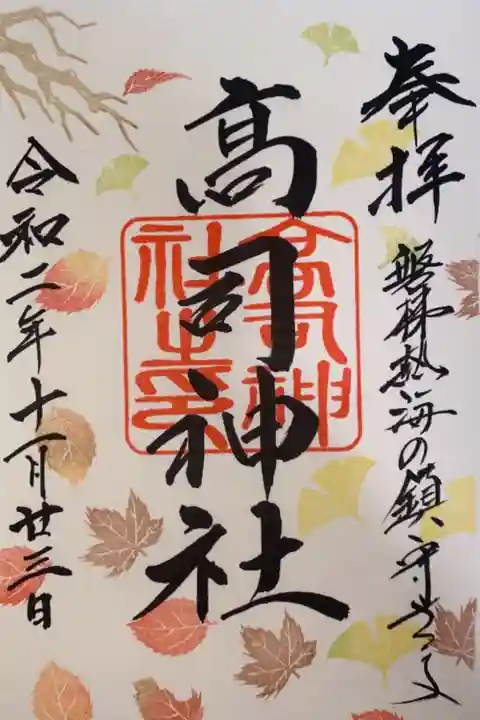 奉拝
磐梯熱海の鎮守
高司神社
高司神
社之印
令和二年十一月廿三日